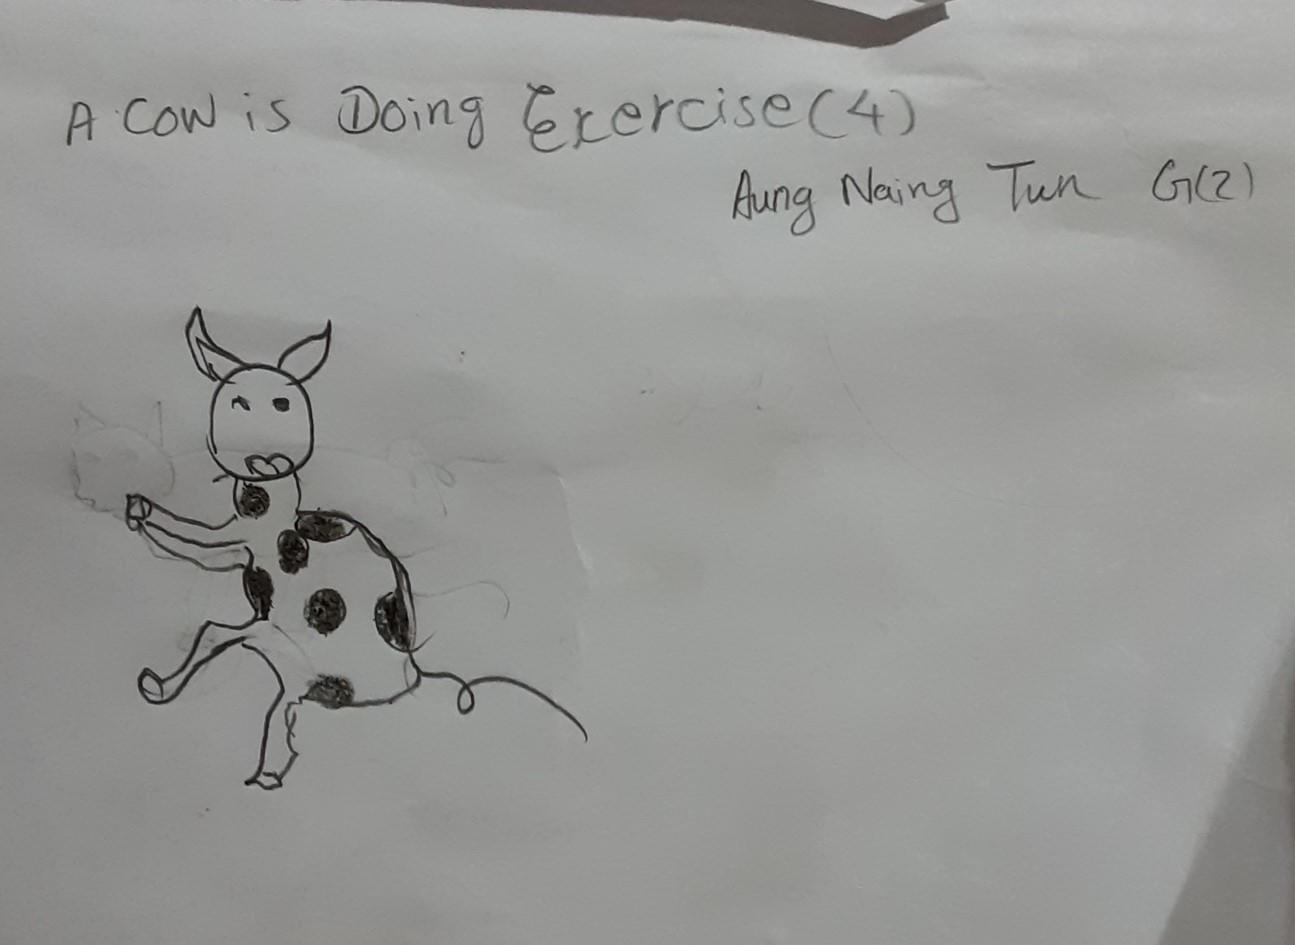 A COW is Doing Exercise(4)
Aung Naing Tun G(2)